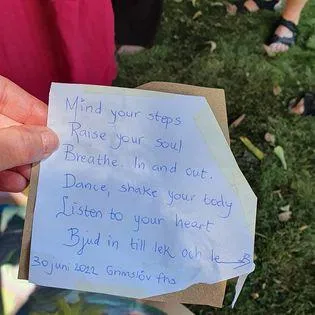 Mind your steps
Raise your soul
Breathe. In and out.
Dance, shake your body
Listen to your heart
Bjud in till lek och le
30 juni 2022 Grimslöv fhs